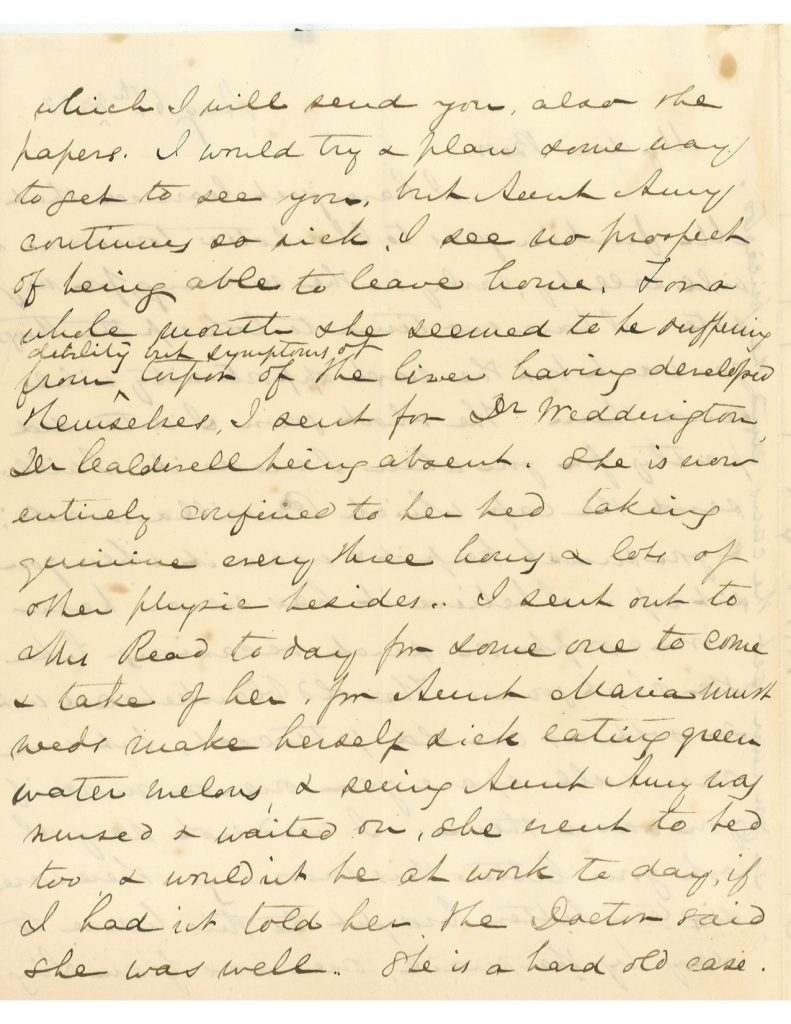 which I will send you, also the
papers. I would try & plan some way
to get to see you, but Aunt Amy
continues so sick, I see no prospect
of being able to leave home. For a
whole month she seemed to be suffering
debility but symptoms of
from ^ torpor of the liver having developed
themselves, I sent for Dr Weddington,
Dr Caldwell being absent. She is now
entirely confined to her bed taking
quinine every three hours & lots of
other physic besides.. I sent out to
Mr Read to day for some one to come
& take of her, for Aunt Maria must
needs make herself sick eating green
water melons, & seeing Aunt Amy was
nursed & waited on, she went to bed
too, & would'nt be at work to day, if
I had'nt told her the Doctor said
she was well.. She is a hard old case.